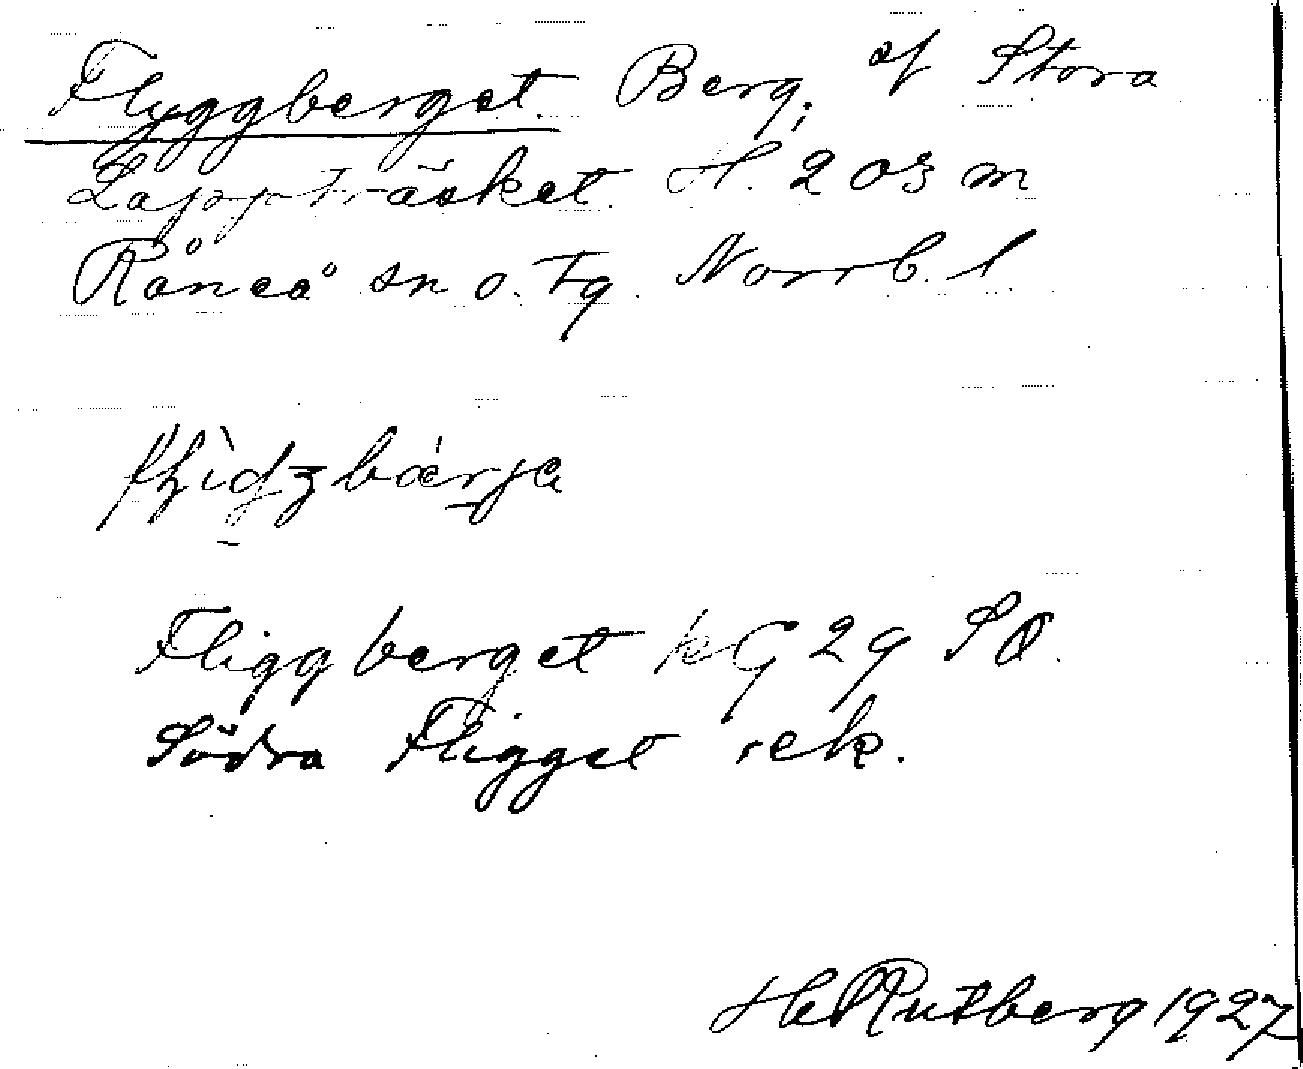 Flyggberget. Berg, af Stora
Lappträsket. H. 203 m
Råneå sn o. tg. Norrb. l
Fliggberget kG 29 SO.
Södra Fligget ek.
H Rutberg 1927